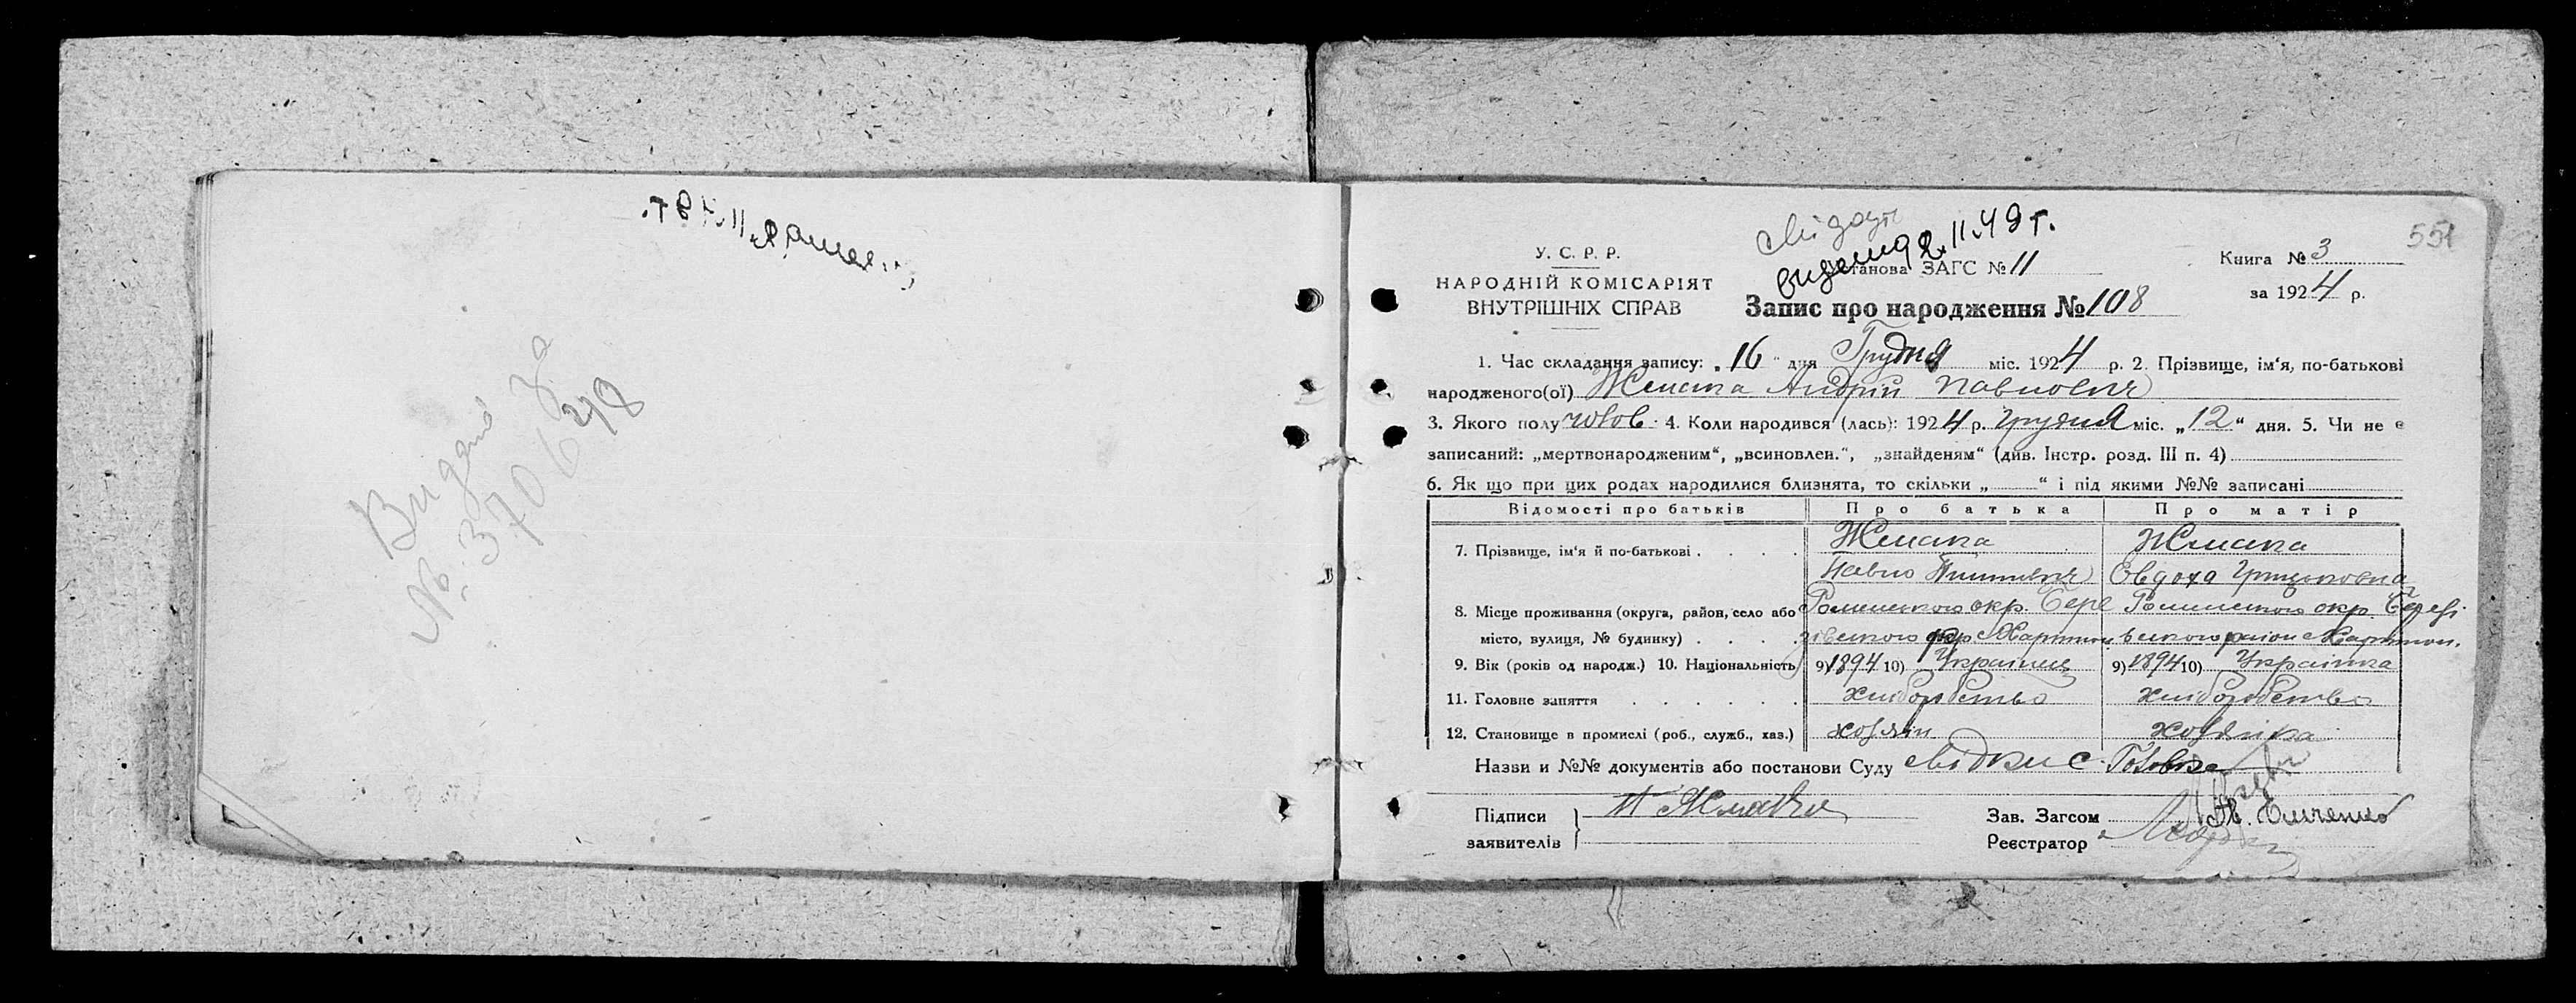 Видано за
№ 3706 248
551
свідоцт
видано 2.11.49 г.
У. С. Р. Р.
НАРОДНІЙ КОМІСАРІЯТ
ВНУТРІШНІХ СПРАВ
Установа ЗАГС № 11
Запис про народження № 108
Книга № 3
за 1924 р.
1. Час складання запису: „16“ дня Грудня міс. 1924 р. 2. Прізвище, ім‘я, по-батькові
народженого(ої) Жмака Андрій Павлович
3. Якого полу чолов. 4. Коли народився (лась): 1924 р. грудня міс. „12“ дня. 5. Чи не є
записаний: „мертвонародженим“, „всиновлен.“, „знайденям“ (див. Інстр. розд. III п. 4)
6. Як що при цих родах народилися близнята, то скільки „ “ і під якими №№ записані
Відомості про батьків Про батька Про матір
7. Прізвище, ім‘я й по-батькові Жмака Жмака
Павло Евдоха Грицьковна
8. Місце проживання (округа, район, село або Роменського окр. Бере Роменского окр. Березі
місто, вулиця, № будинку) зівського вського район
9. Вік (років од народж.) 10. Національність 9) 1894 10) Українець 9) 1894 10) Українка
11. Головне заняття хліборобство хліборобство
12. Становище в промислі (роб., служб., хаз.) хозяїн хозяйка
Назви и №№ документів або постанови Суду свідки с.
Підписи П Жмака
заявителів
Зав. Загсом
Реєстратор